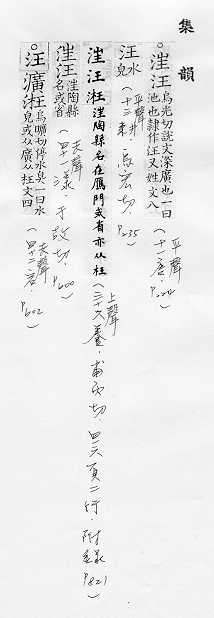 集韻
汪 烏光切說文深廣也一曰池也隸作汪又姓文八 (平聲 十一唐.
汪 水皃 (平聲 十三耕. 烏宏切 P235)
汪 陶縣名在鴈門或省亦从枉 (上聲 三十六養. 切. 四一六頁二行. 附錄 P821)
汪 陶縣名或省 (去聲 四十一漾. 于放切. P600)
○汪瀇 烏曠切停水臭一曰水皃或从廣从枉文四 (去聲 四十二宕. P602)